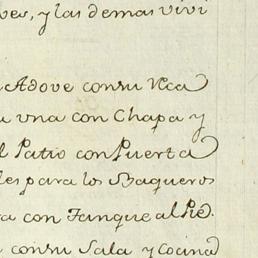 ves, y las demas vivi
Adove con su
una con Chapa y
l Patio con Puerta
les para los Baqueros
a con Tanque al Pie.
con su Sala y Cocina